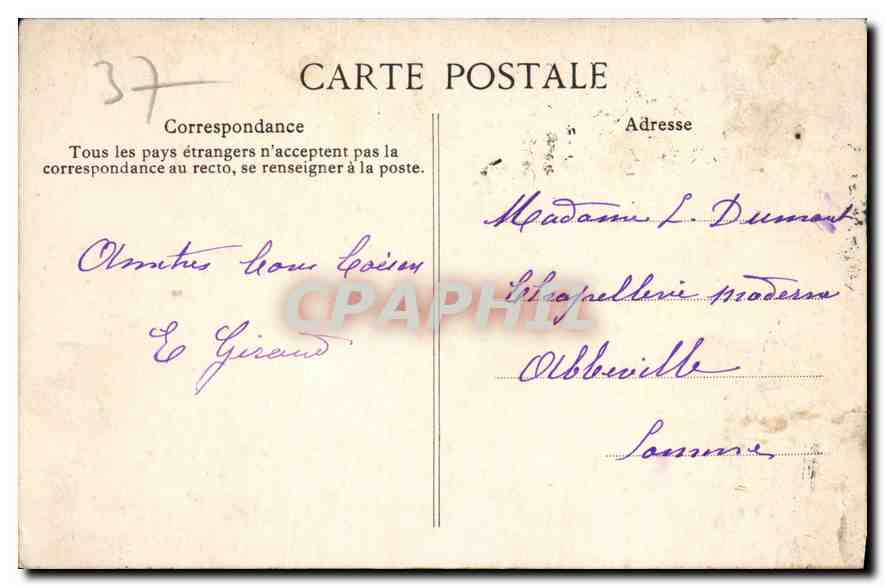 37
CARTE POSTALE
Correspondance
Tous les pays étrangers n'acceptent pas la
correspondance au recto, se renseigner à la poste.
Adresse
Madame L. Dumont
Chapellerie moderne
Abbeville
Somme
Amitiés
E Giraud
CPAPHIL